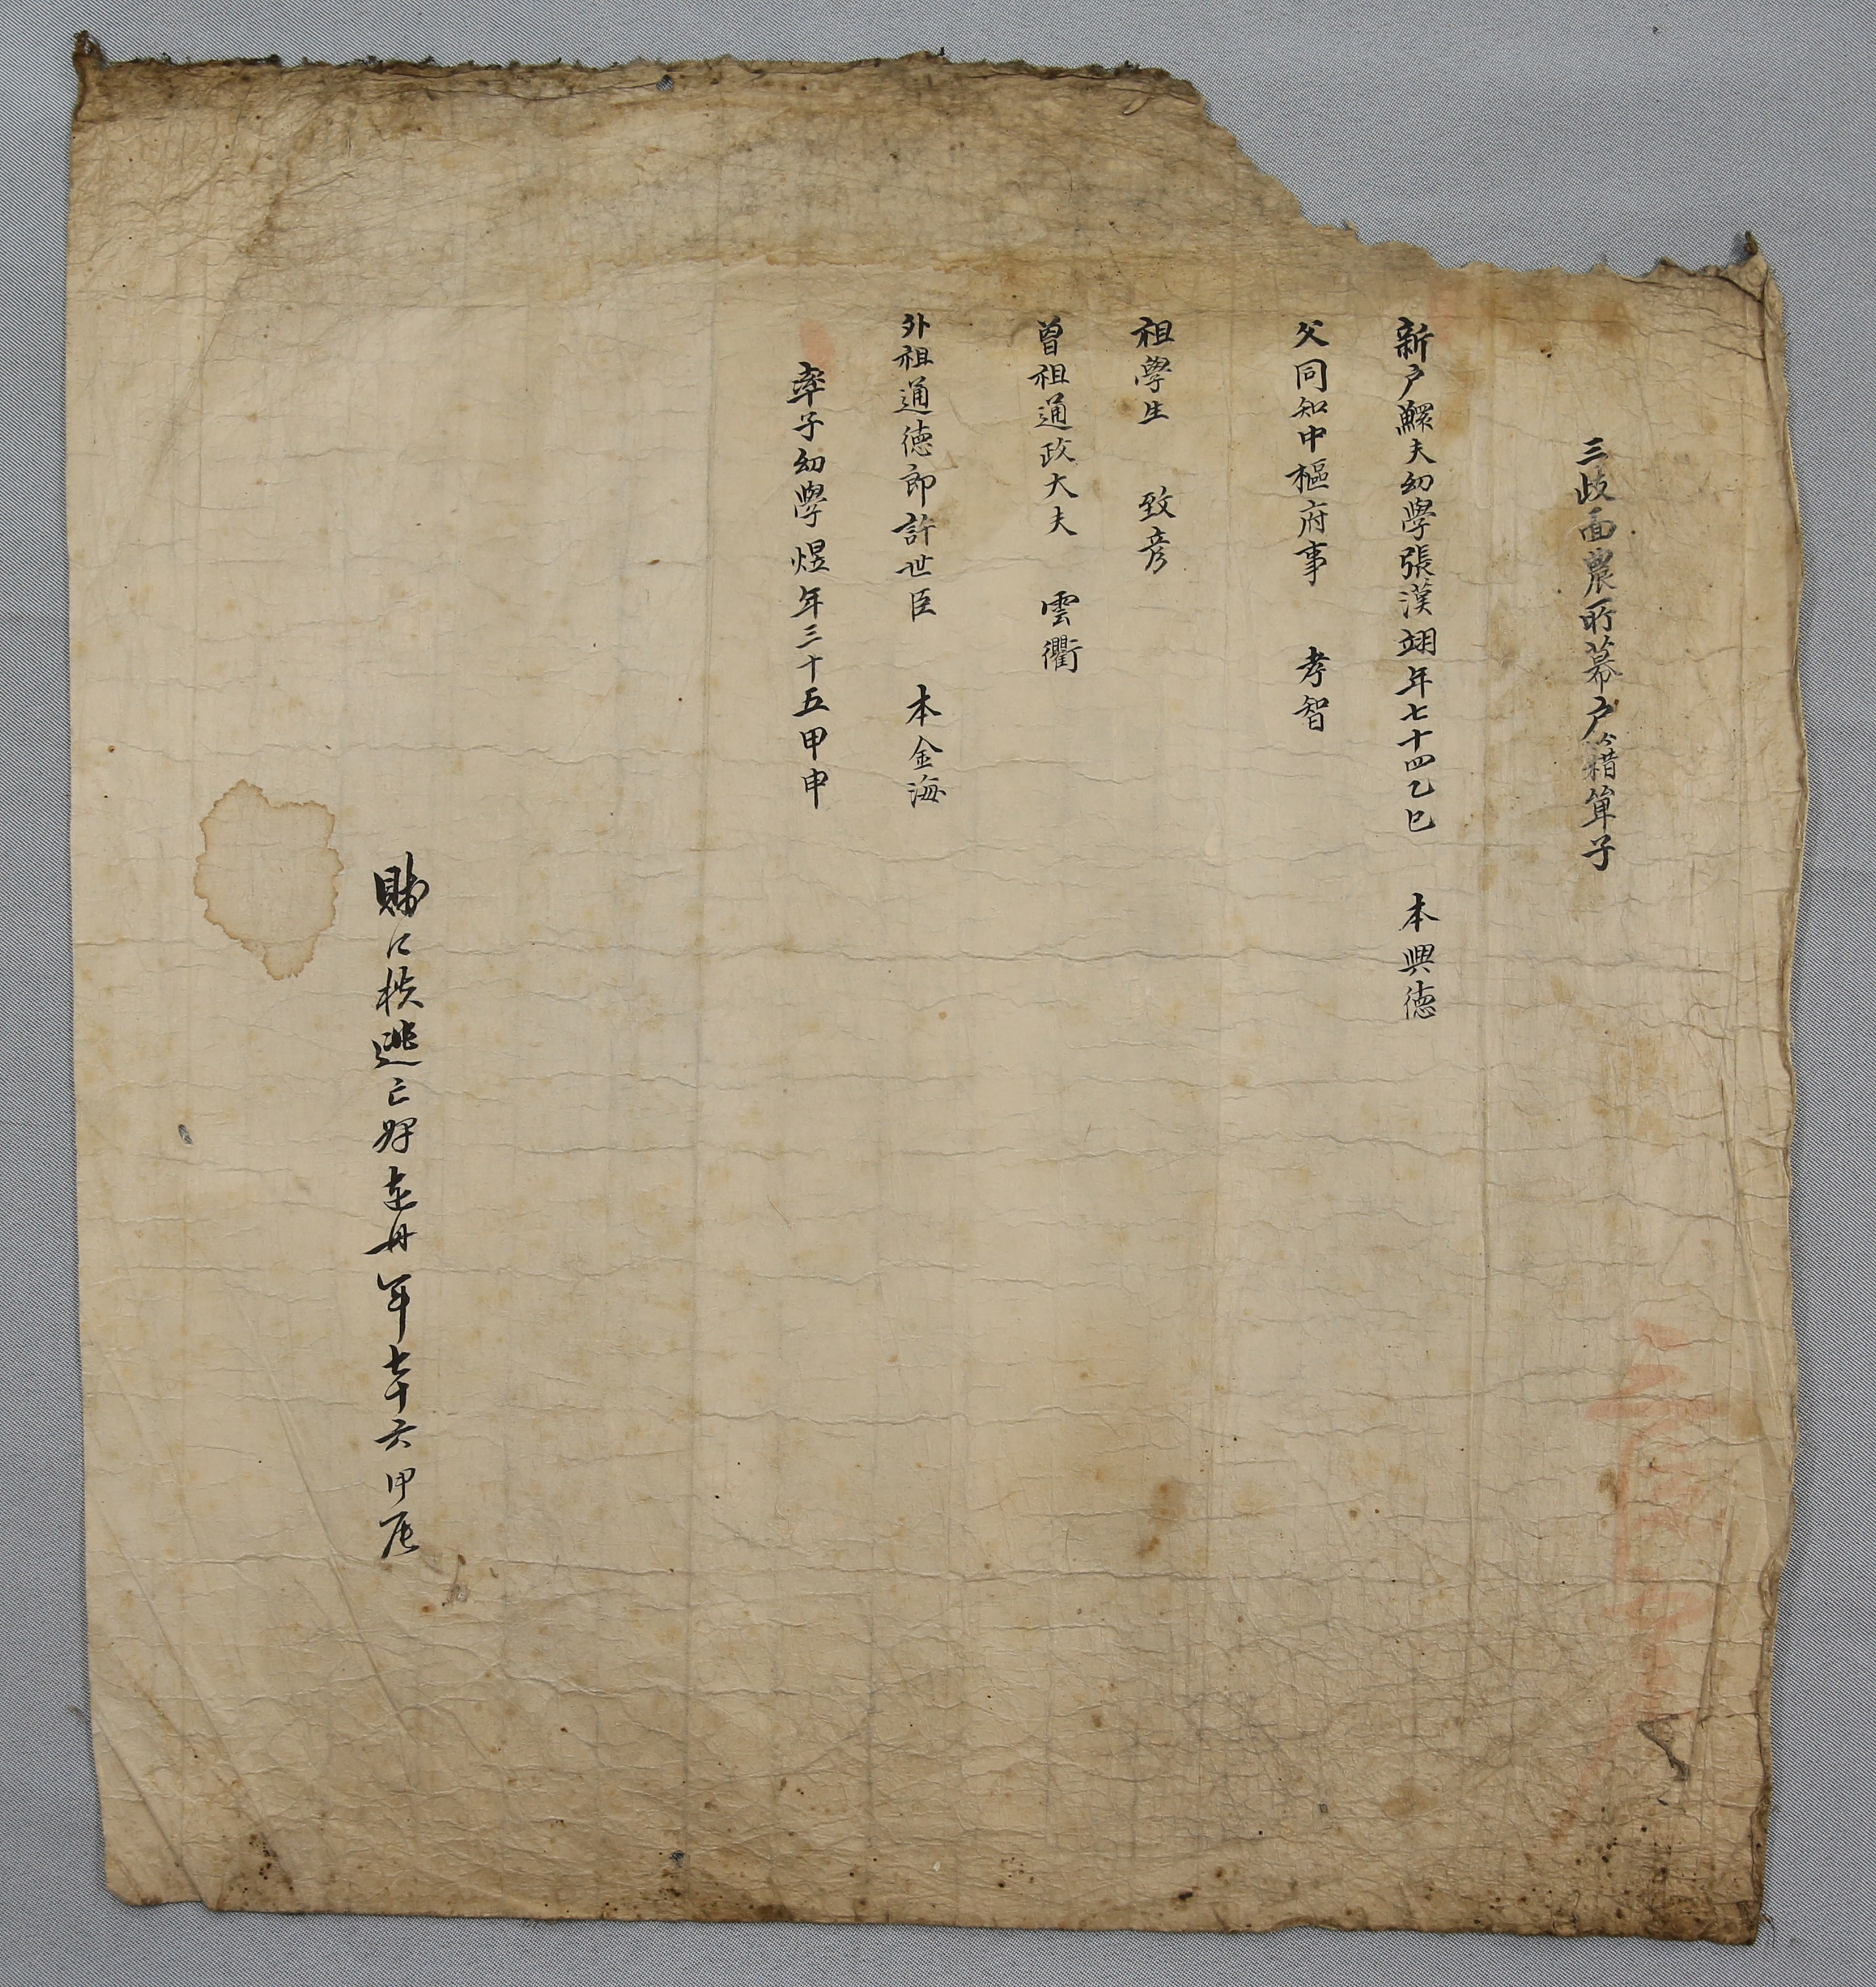 三歧面農所幕戶籍單子
新戶鰥夫幼學張漢翊年七十四乙巳 本興德
父同知中樞府事 孝智
祖學生 致彦
曾祖通政大夫 雲衢
外祖通德郎許世臣 本金海
率子幼學煜年三十五甲申
逃亡婢 丹年七十六甲辰